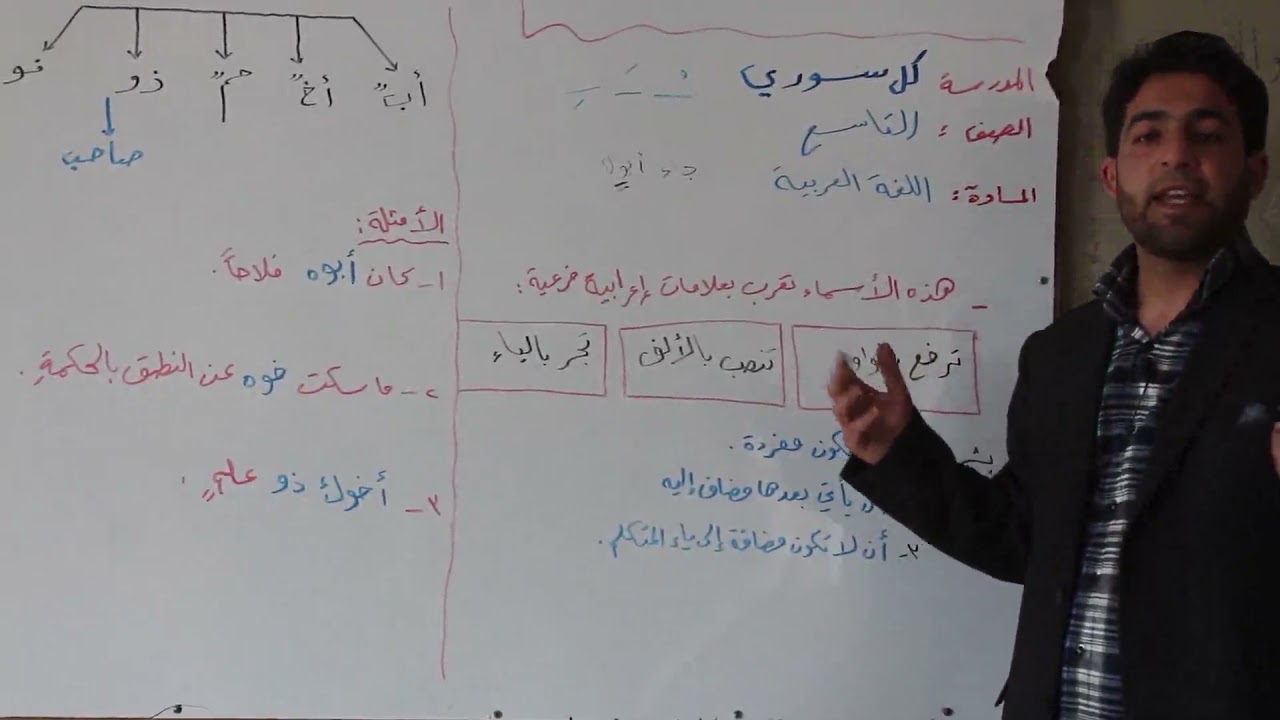 المدرسة كل سوري
الصف : التاسع
المادة : اللغة العربية
- هذه الأسماء تعرب بعلامات إعرابية فرعية :
ترفع
تنصب بالألف
تجر بالياء
تكون مفردة .
يأتي بعدها مضاف إليه
٣- أن لا تكون مضافة إلى ياء المتكلم .
أبٌ أخٌ حمٌ ذو فو
صاحب
الأمثلة :
١- كان أبوه فلاحاً .
٢- ما سكت فوه عن النطق بالحكمةِ .
٣- أخوك ذو علمٍ .